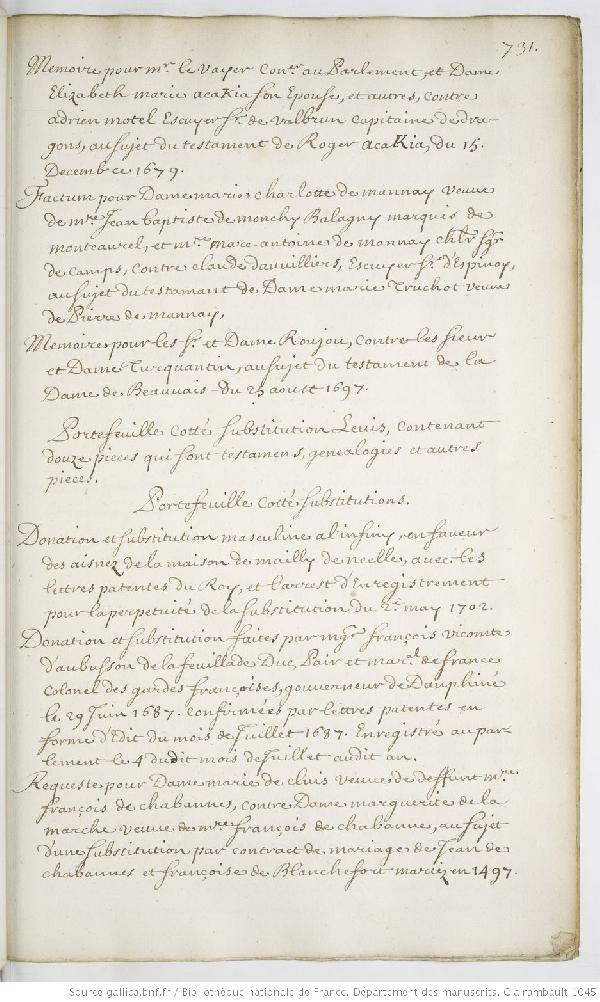 731.
Memoire pour mr. le Vayer Conr. au Parlement, et Dame
Elizabeth marie acaKia son Epouse, et autres, Contre
adrien motel Escuyer Sr. de Valbrun Capitaine de dra=
gons, au sujet du testament de Roger acaKia, du 15.
Decembre 1679.
Factum pour Dame marie charlotte de mannay Veuve
de mre Jean baptiste de monchy Balagny marquis de
montcaurel, et mre marc-antoine de mannay chlr Sgr.
de Camps, Contre claude dauvilliers, Escuyer Sr. d'Espinoy,
au sujet du testamant de Dame marie Truchot veuve
de Pierre de mannay,
Memoire pour les Sr. et Dame Roujou, Contre les sieur
et Dame Turquantin, au sujet du testament de la
Dame de Beauvais du 25 aoust 1697.
Portefeuille Cotté Substitution Levis, Contenant
douze pieces qui sont testamens, genealogies et autres
pieces.
Portefeuille Cotté Substitutions.
Donation et substitution masculine a l'infiny, en faveur
des aisnez de la maison de mailly de neelle, avec les
lettres patentes du Roy, et l'arrest d'Enregistrement
pour la perpetuité de la substitution du 2e. may 1702.
Donation et substitution faites par mgr. françois vicomte
d'aubusson de la feuillade Duc, Pair et maral. de france
Colonel des gardes françoises, gouverneur de Dauphiné
le 29 Juin 1687. Confirmées par lettres patentes en
forme d'Edit du mois de Juillet 1687. Enregistré au par-
lement le 4 dudit mois de Juillet audit an.
Requeste pour Dame marie de cluis veuve de deffunt mre
françois de chabannes, Contre Dame marguerite de la
marche veuve de mre françois de chabanne, au sujet
d'une substitution par contract de mariage de Jean de
chabannes et françoise de Blanchefort mariez en 1497.
Source gallica.bnf.fr / Bibliothèque nationale de France. Département des manuscrits. Clairambault 1045